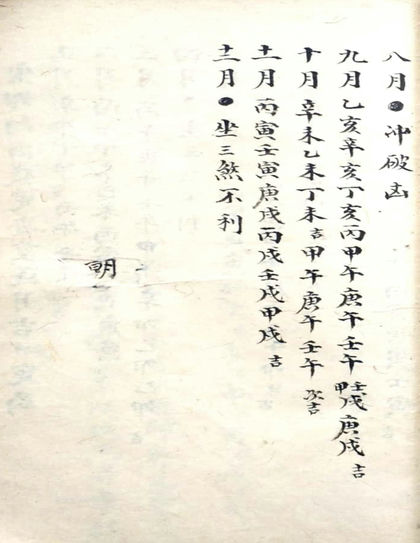 八月●冲破凶
九月乙亥辛亥丁亥丙午甲午庚午壬午壬戌甲戌庚戌吉
十月辛未乙未丁未吉甲午庚午壬午次吉
十一月丙寅壬寅庚戌丙戌壬戌甲戌吉
十二月●坐三煞不利